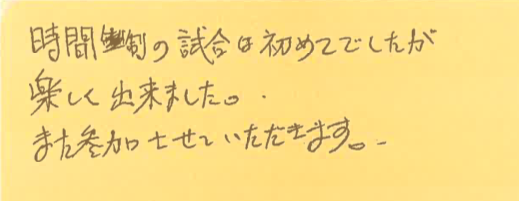 時間制の試合は初めてでしたが
楽しく出来ました。
また参加させていただきます。